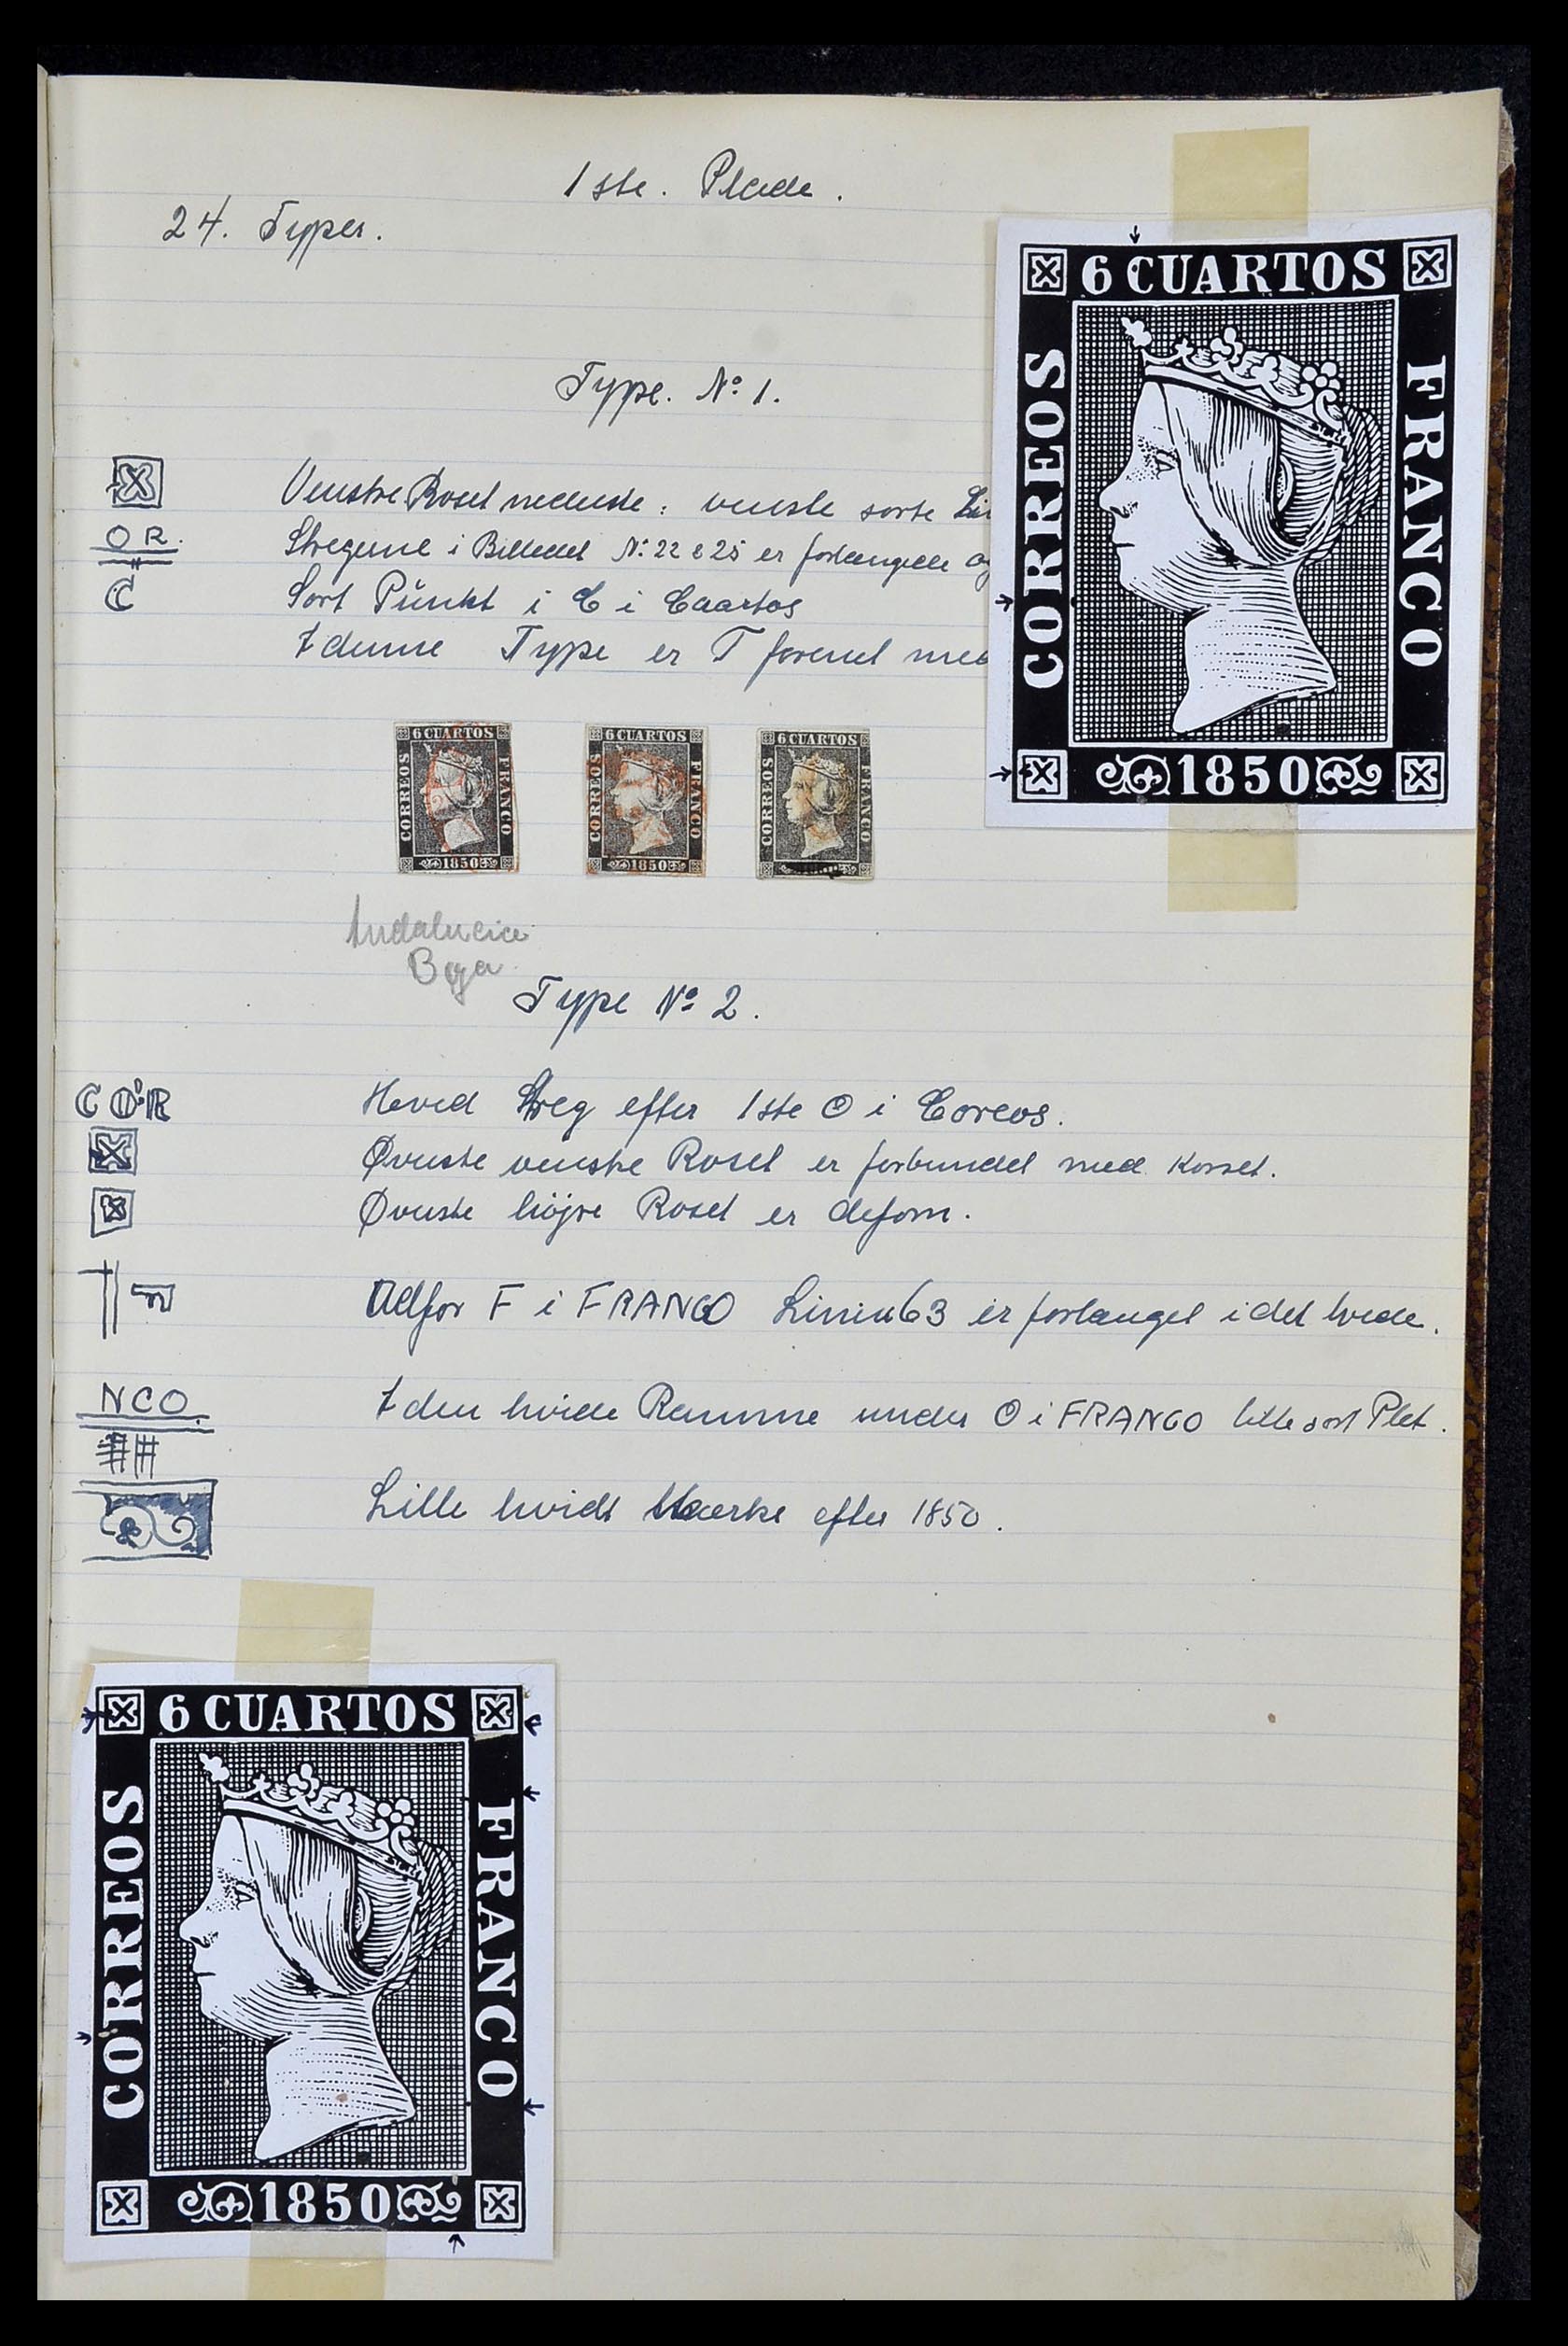 1 ste. Plade.
24. Typer.
6 CUARTOS
CORREOS
FRANCO
1850
Type. Nº 1.
Venstre Roset nederste: venstre sorte Li
OR.
Stregerne i Billedet Nº 22 & 25 er forlængede og
C
Sort Punkt i C i Cuartos
I denne Type er T forenet med
6 CUARTOS
CORREOS
FRANCO
1850
6 CUARTOS
CORREOS
FRANCO
1850
6 CUARTOS
CORREOS
FRANCO
Andalucia
Type Nº 2.
COR
Hovid Streg efter 1ste O i Coreos.
Øverste venstre Roset er forbundet med Korset.
Øverste højre Roset er deform.
Udfor F i FRANCO Linie 63 er forlænget i det hvide.
NCO.
I den hvide Ramme under O i FRANCO lille sort Plet.
Lille hvidt Mærke efter 1850.
6 CUARTOS
CORREOS
FRANCO
1850